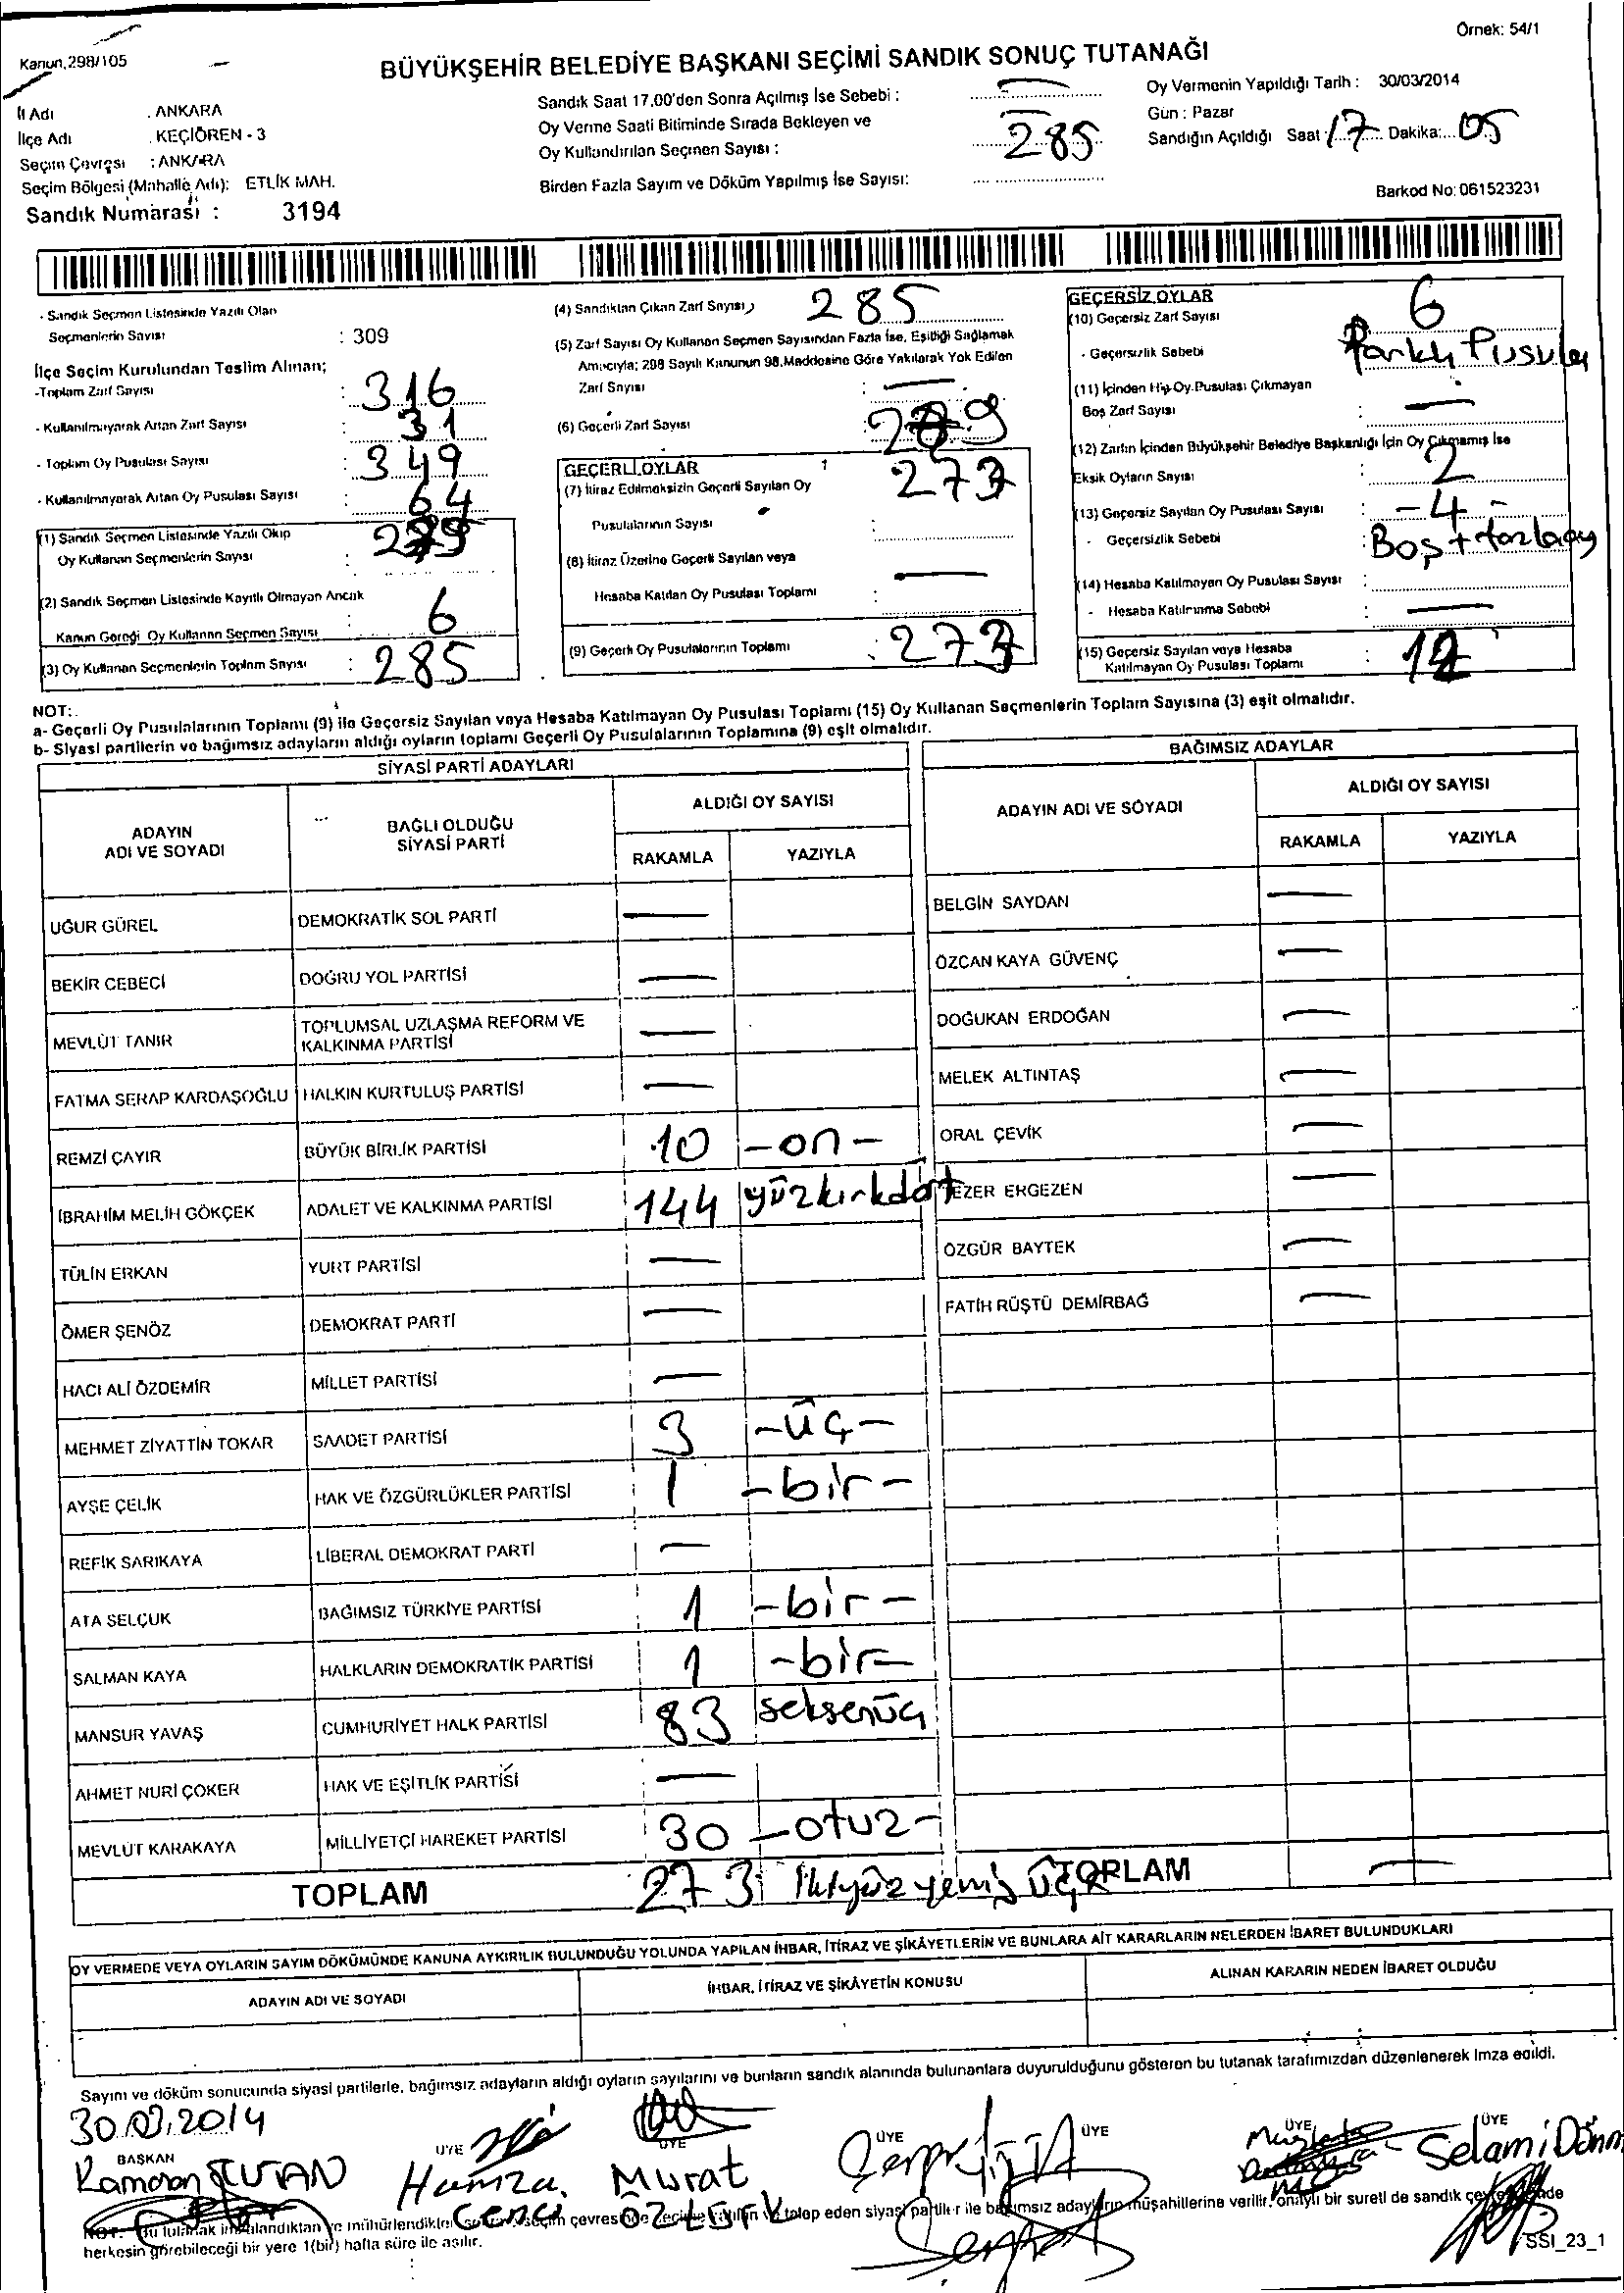 Örnek: 54/1
Kanun, 298/105
BÜYÜKŞEHİR BELEDİYE BAŞKANI SEÇİMİ SANDIK SONUÇ TUTANAĞI
İl Adı : ANKARA
İlçe Adı : KEÇİÖREN - 3
Seçim Çevresi : ANKARA
Seçim Bölgesi (Mahalle Adı): ETLİK MAH.
Sandık Numarası : 3194
Sandık Saat 17.00'den Sonra Açılmış İse Sebebi :
Oy Verme Saati Bitiminde Sırada Bekleyen ve
Oy Kullandırılan Seçmen Sayısı : 285
Birden Fazla Sayım ve Döküm Yapılmış İse Sayısı:
Oy Vermenin Yapıldığı Tarih : 30/03/2014
Gün : Pazar
Sandığın Açıldığı Saat : 17 Dakika: 05
Barkod No: 061523231
- Sandık Seçmen Listesinde Yazılı Olan
Seçmenlerin Sayısı : 309
İlçe Seçim Kurulundan Teslim Alınan;
-Toplam Zarf Sayısı : 316
- Kullanılmayarak Artan Zarf Sayısı : 31
- Toplam Oy Pusulası Sayısı : 349
- Kullanılmayarak Artan Oy Pusulası Sayısı : 64
(1) Sandık Seçmen Listesinde Yazılı Olup
Oy Kullanan Seçmenlerin Sayısı : 279
(2) Sandık Seçmen Listesinde Kayıtlı Olmayan Ancak
Kanun Gereği Oy Kullanan Seçmen Sayısı : 6
(3) Oy Kullanan Seçmenlerin Toplam Sayısı : 285
(4) Sandıktan Çıkan Zarf Sayısı 285
(5) Zarf Sayısı Oy Kullanan Seçmen Sayısından Fazla İse, Eşitliği Sağlamak
Amacıyla; 298 Sayılı Kanunun 98.Maddesine Göre Yakılarak Yok Edilen
Zarf Sayısı : —
(6) Geçerli Zarf Sayısı : 279
GEÇERLİ OYLAR
(7) İtiraz Edilmeksizin Geçerli Sayılan Oy 273
Pusulalarının Sayısı :
(8) İtiraz Üzerine Geçerli Sayılan veya —
Hesaba Katılan Oy Pusulası Toplamı :
(9) Geçerli Oy Pusulalarının Toplamı : 273
GEÇERSİZ OYLAR
(10) Geçersiz Zarf Sayısı 6
- Geçersizlik Sebebi Farklı Pusula
(11) İçinden Hiç Oy Pusulası Çıkmayan
Boş Zarf Sayısı : —
(12) Zarfın İçinden Büyükşehir Belediye Başkanlığı İçin Oy Çıkmamış İse
Eksik Oyların Sayısı : 2
(13) Geçersiz Sayılan Oy Pusulası Sayısı : - 4 -
- Geçersizlik Sebebi : Boş +
(14) Hesaba Katılmayan Oy Pusulası Sayısı :
- Hesaba Katılmama Sebebi : —
(15) Geçersiz Sayılan veya Hesaba
Katılmayan Oy Pusulası Toplamı : 12
NOT:
a- Geçerli Oy Pusulalarının Toplamı (9) ile Geçersiz Sayılan veya Hesaba Katılmayan Oy Pusulası Toplamı (15) Oy Kullanan Seçmenlerin Toplam Sayısına (3) eşit olmalıdır.
b- Siyasi partilerin ve bağımsız adayların aldığı oyların toplamı Geçerli Oy Pusulalarının Toplamına (9) eşit olmalıdır.
SİYASİ PARTİ ADAYLARI
ADAYIN ADI VE SOYADI BAĞLI OLDUĞU SİYASİ PARTİ ALDIĞI OY SAYISI
RAKAMLA YAZIYLA
UĞUR GÜREL DEMOKRATİK SOL PARTİ —
BEKİR CEBECİ DOĞRU YOL PARTİSİ —
MEVLÜT TANIR TOPLUMSAL UZLAŞMA REFORM VE KALKINMA PARTİSİ —
FATMA SERAP KARDAŞOĞLU HALKIN KURTULUŞ PARTİSİ —
REMZİ ÇAYIR BÜYÜK BİRLİK PARTİSİ 10 -on-
İBRAHİM MELİH GÖKÇEK ADALET VE KALKINMA PARTİSİ 144 yüzkırkdört
TÜLİN ERKAN YURT PARTİSİ —
ÖMER ŞENÖZ DEMOKRAT PARTİ —
HACI ALİ ÖZDEMİR MİLLET PARTİSİ —
MEHMET ZİYATTİN TOKAR SAADET PARTİSİ 3 -üç-
AYŞE ÇELİK HAK VE ÖZGÜRLÜKLER PARTİSİ 1 -bir-
REFİK SARIKAYA LİBERAL DEMOKRAT PARTİ —
ATA SELÇUK BAĞIMSIZ TÜRKİYE PARTİSİ 1 -bir-
SALMAN KAYA HALKLARIN DEMOKRATİK PARTİSİ 1 -bir-
MANSUR YAVAŞ CUMHURİYET HALK PARTİSİ 83 seksenüç
AHMET NURİ ÇOKER HAK VE EŞİTLİK PARTİSİ —
MEVLÜT KARAKAYA MİLLİYETÇİ HAREKET PARTİSİ 30 -otuz-
TOPLAM 273 İkiyüz yemiş üç
BAĞIMSIZ ADAYLAR
ADAYIN ADI VE SOYADI ALDIĞI OY SAYISI
RAKAMLA YAZIYLA
BELGİN SAYDAN —
ÖZCAN KAYA GÜVENÇ —
DOĞUKAN ERDOĞAN —
MELEK ALTINTAŞ —
ORAL ÇEVİK —
EZER ERGEZEN —
ÖZGÜR BAYTEK —
FATİH RÜŞTÜ DEMİRBAĞ —
TOPLAM —
OY VERMEDE VEYA OYLARIN SAYIM DÖKÜMÜNDE KANUNA AYKIRILIK BULUNDUĞU YOLUNDA YAPILAN İHBAR, İTİRAZ VE ŞİKÂYETLERİN VE BUNLARA AİT KARARLARIN NELERDEN İBARET BULUNDUKLARI
ADAYIN ADI VE SOYADI İHBAR, İTİRAZ VE ŞİKÂYETİN KONUSU ALINAN KARARIN NEDEN İBARET OLDUĞU
Sayım ve döküm sonucunda siyasi partilerle, bağımsız adayların aldığı oyların sayılarını ve bunların sandık alanında bulunanlara duyurulduğunu gösteren bu tutanak tarafımızdan düzenlenerek imza edildi.
30.03.2014
BAŞKAN ÜYE ÜYE ÜYE ÜYE ÜYE ÜYE
Kamoran Hamza Cenci Murat Selami
NOT: Bu tutanak imzalandıktan ve mühürlendikten seçim çevresinde talep eden siyasi partiler ile bağımsız adayların müşahitlerine verilir, onaylı bir sureti de sandık çevresinde
herkesin görebileceği bir yere 1(bir) hafta süre ile asılır.
SSI_23_1